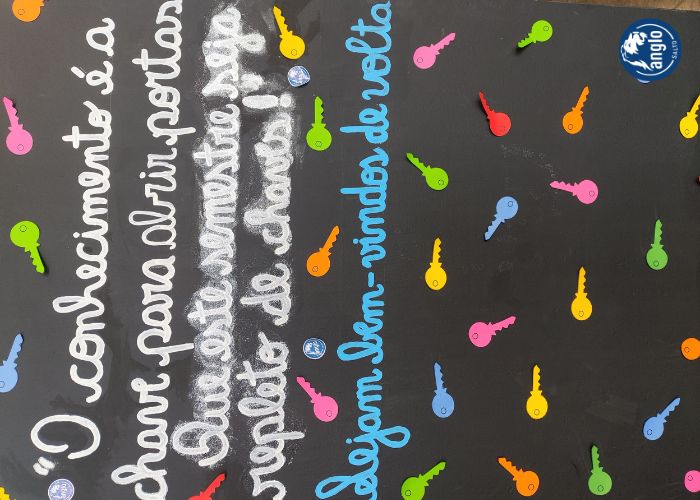 "O conhecimento é a
chave para abrir portas
Que este semestre seja
repleto de chaves!"
Sejam bem-vindos de volta
anglo
SALTO